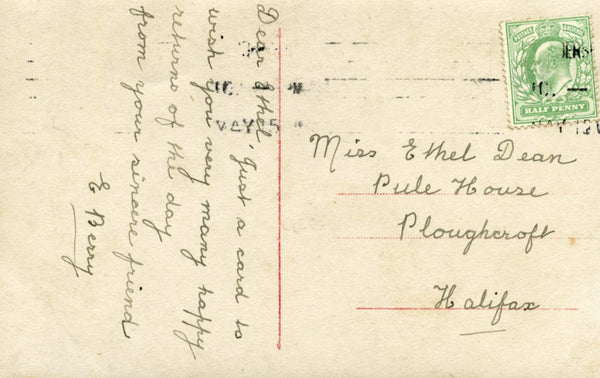 Dear Ethel, Just a card to
wish you very many happy
returns of the day
from your sincere friend
E Berry
HALF PENNY
Miss Ethel Dean
Pule House
Ploughcroft
Halifax